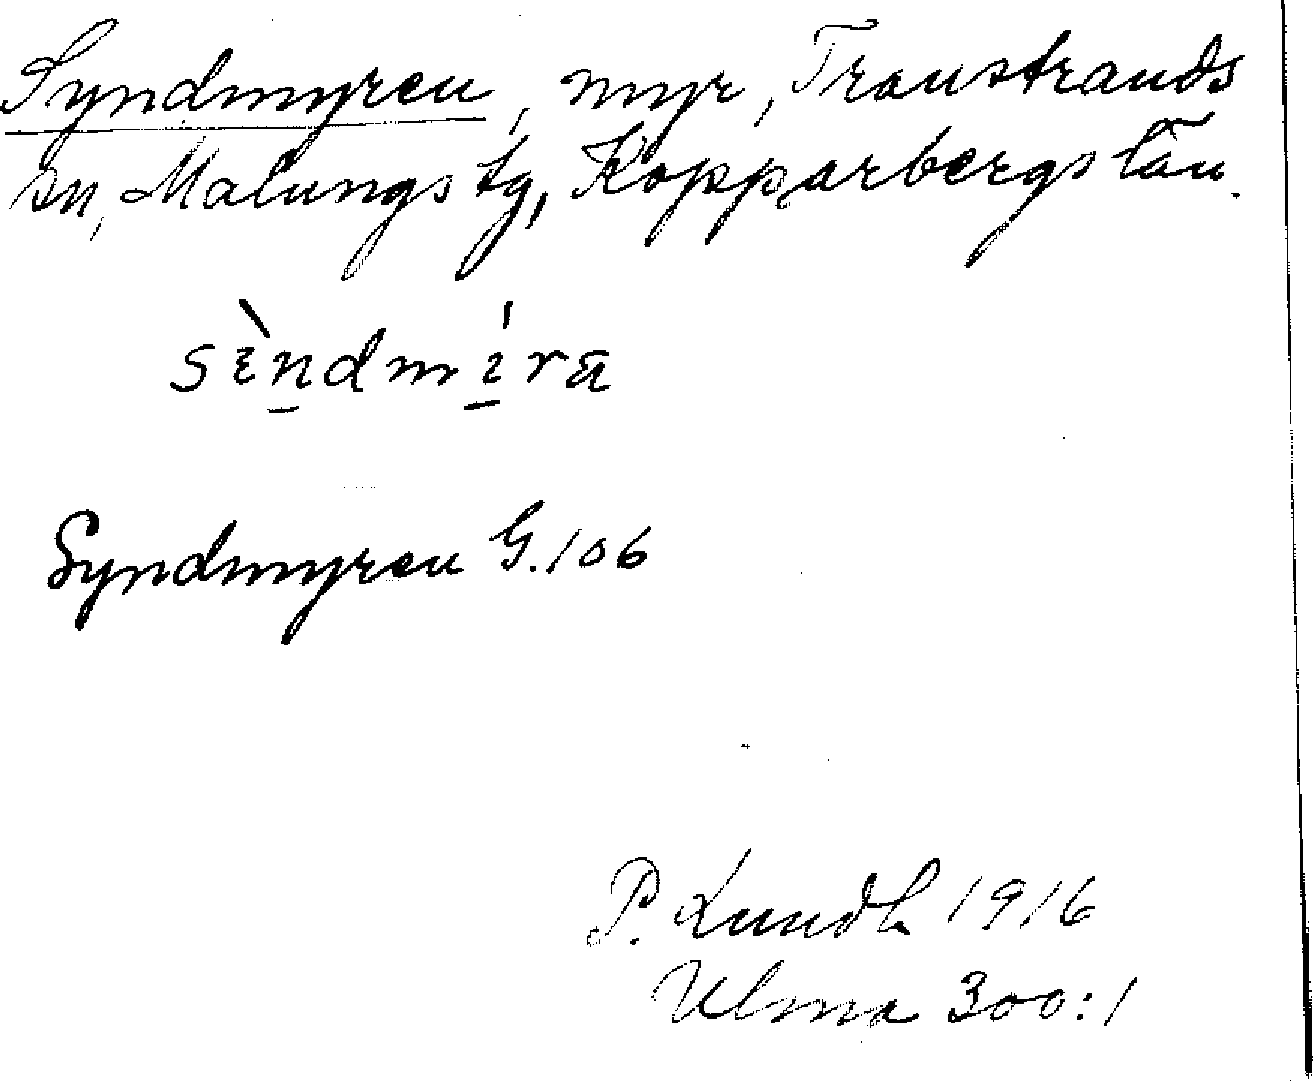 Syndmyren, myr, Transtrands
sn, Malungs tg, Kopparbergs län.
Syndmyren G. 106
P. Lundh 1916
Ulma 300:1